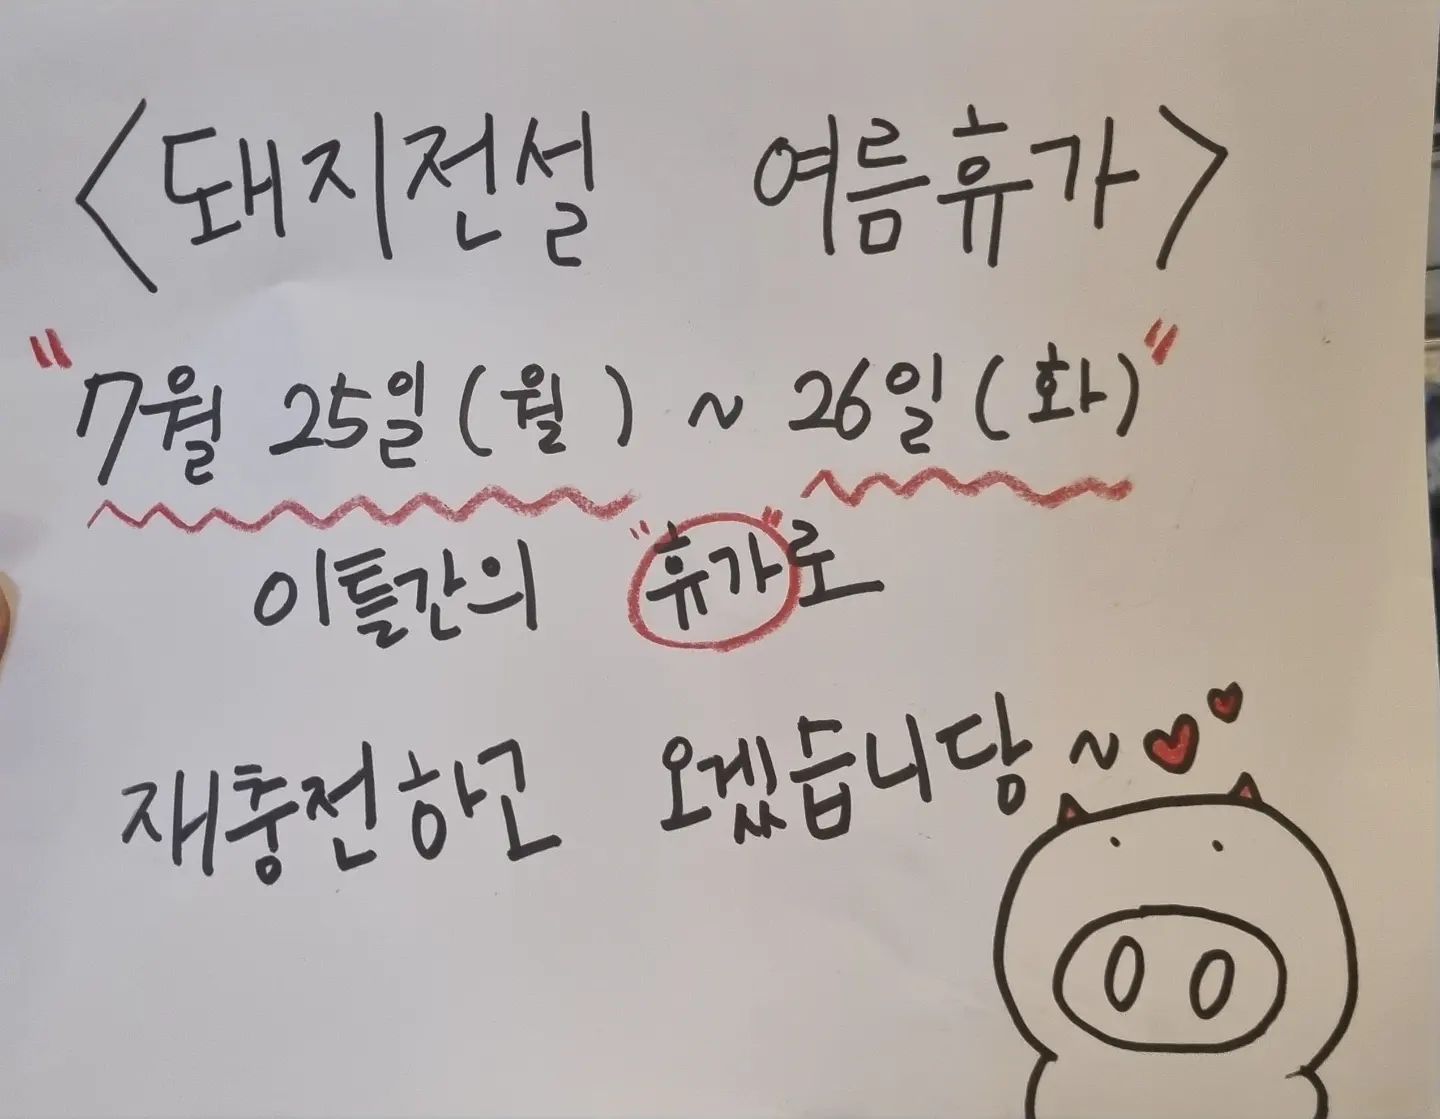 <돼지전설 여름휴가>
"7월 25일(월) ~ 26일(화)"
이틀간의 "휴가"로
재충전하고 오겠습니당~♥♥